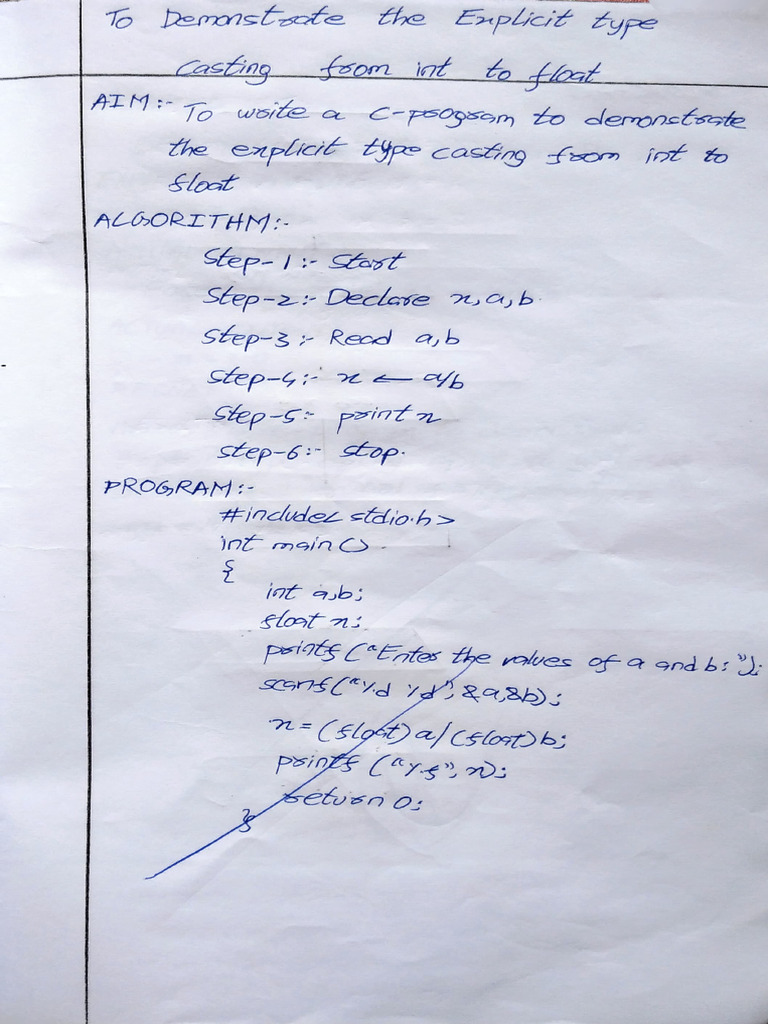 To Demonstrate the Explicit type
casting from int to float
AIM:- To write a C-program to demonstrate
the explicit type casting from int to
float
ALGORITHM:-
Step-1:- Start
Step-2:- Declare x,a,b.
Step-3:- Read a,b
Step-4:- x ← a/b
Step-5:- print x
Step-6:- stop.
PROGRAM:-
#include< stdio.h>
int main()
{
int a,b;
float x;
printf("Enter the values of a and b: ");
scanf("%d %d", &a,&b);
x = (float)a/(float)b;
printf ("%f", x);
return 0;
}